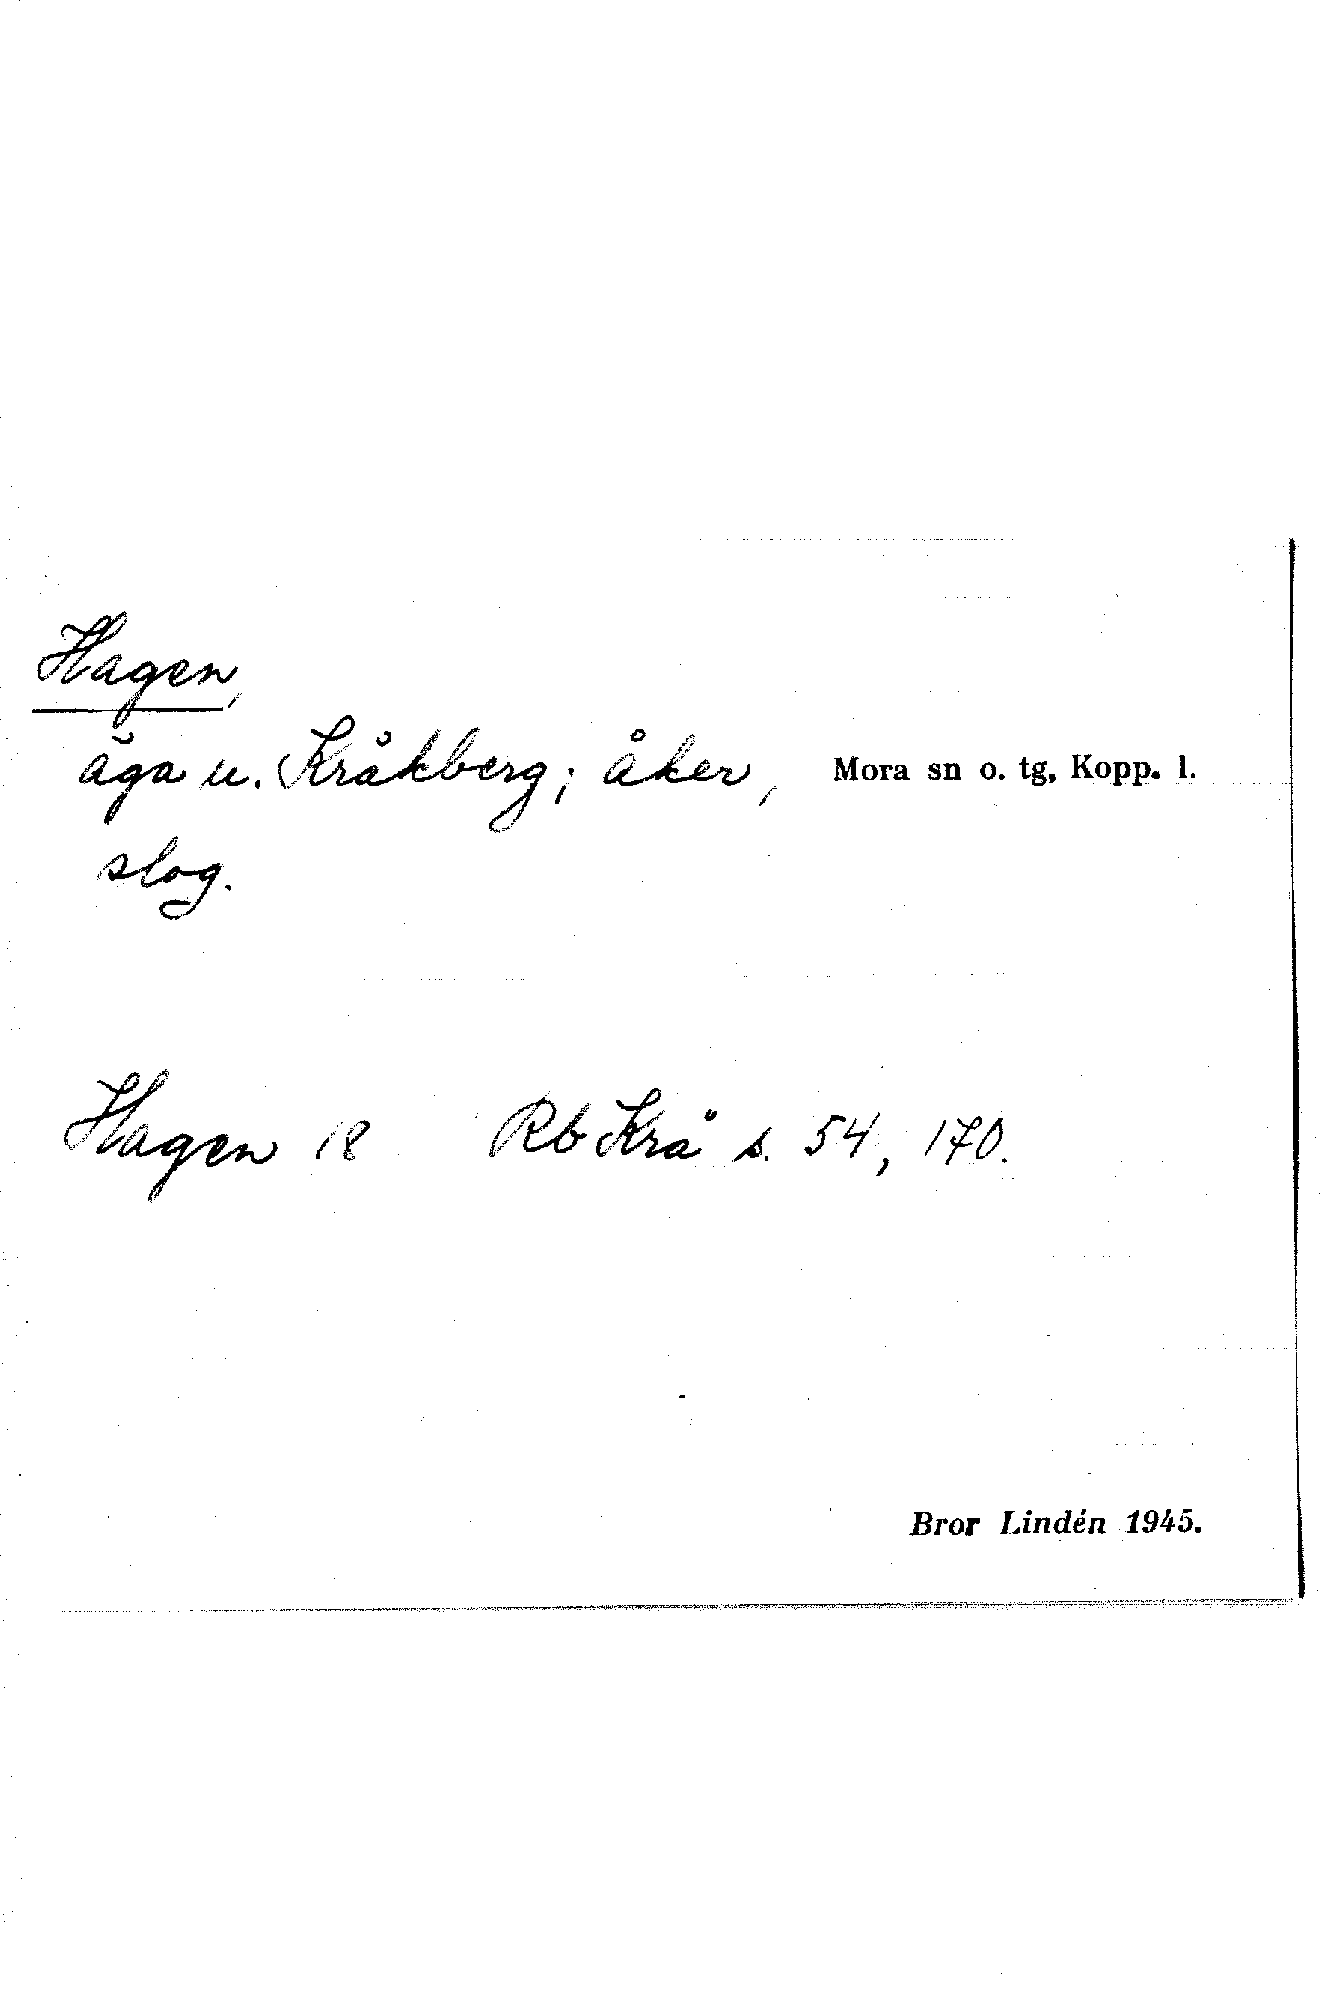 Hagen,
äga u. Kråkberg; åker, Mora sn o. tg, Kopp. l.
slog.
Hagen 18 Rb Krå s. 54, 170.
Bror Lindén 1945.